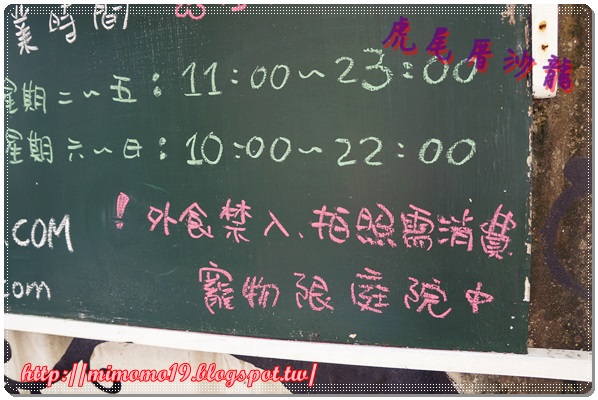 業時間
虎尾厝沙龍
星期二~五：11:00~23:00
星期六~日：10:00~22:00
.COM
！外食禁入、拍照需消費
com
寵物限庭院中
http://mimomo19.blogspot.tw/